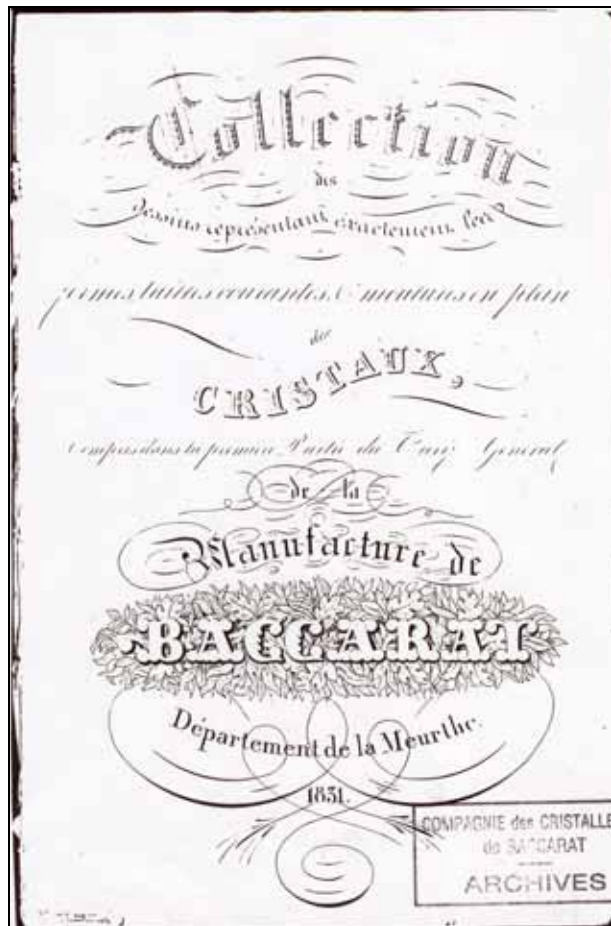 Collection
des
Dessins représentant exactement les
formes tailles courantes & moulures en plein
des
CRISTAUX,
dans la première Partie du Tarif Général
de la
Manufacture de
BACCARAT
Département de la Meurthe.
1831.
COMPAGNIE des CRISTALLE
de BACCARAT
ARCHIVES